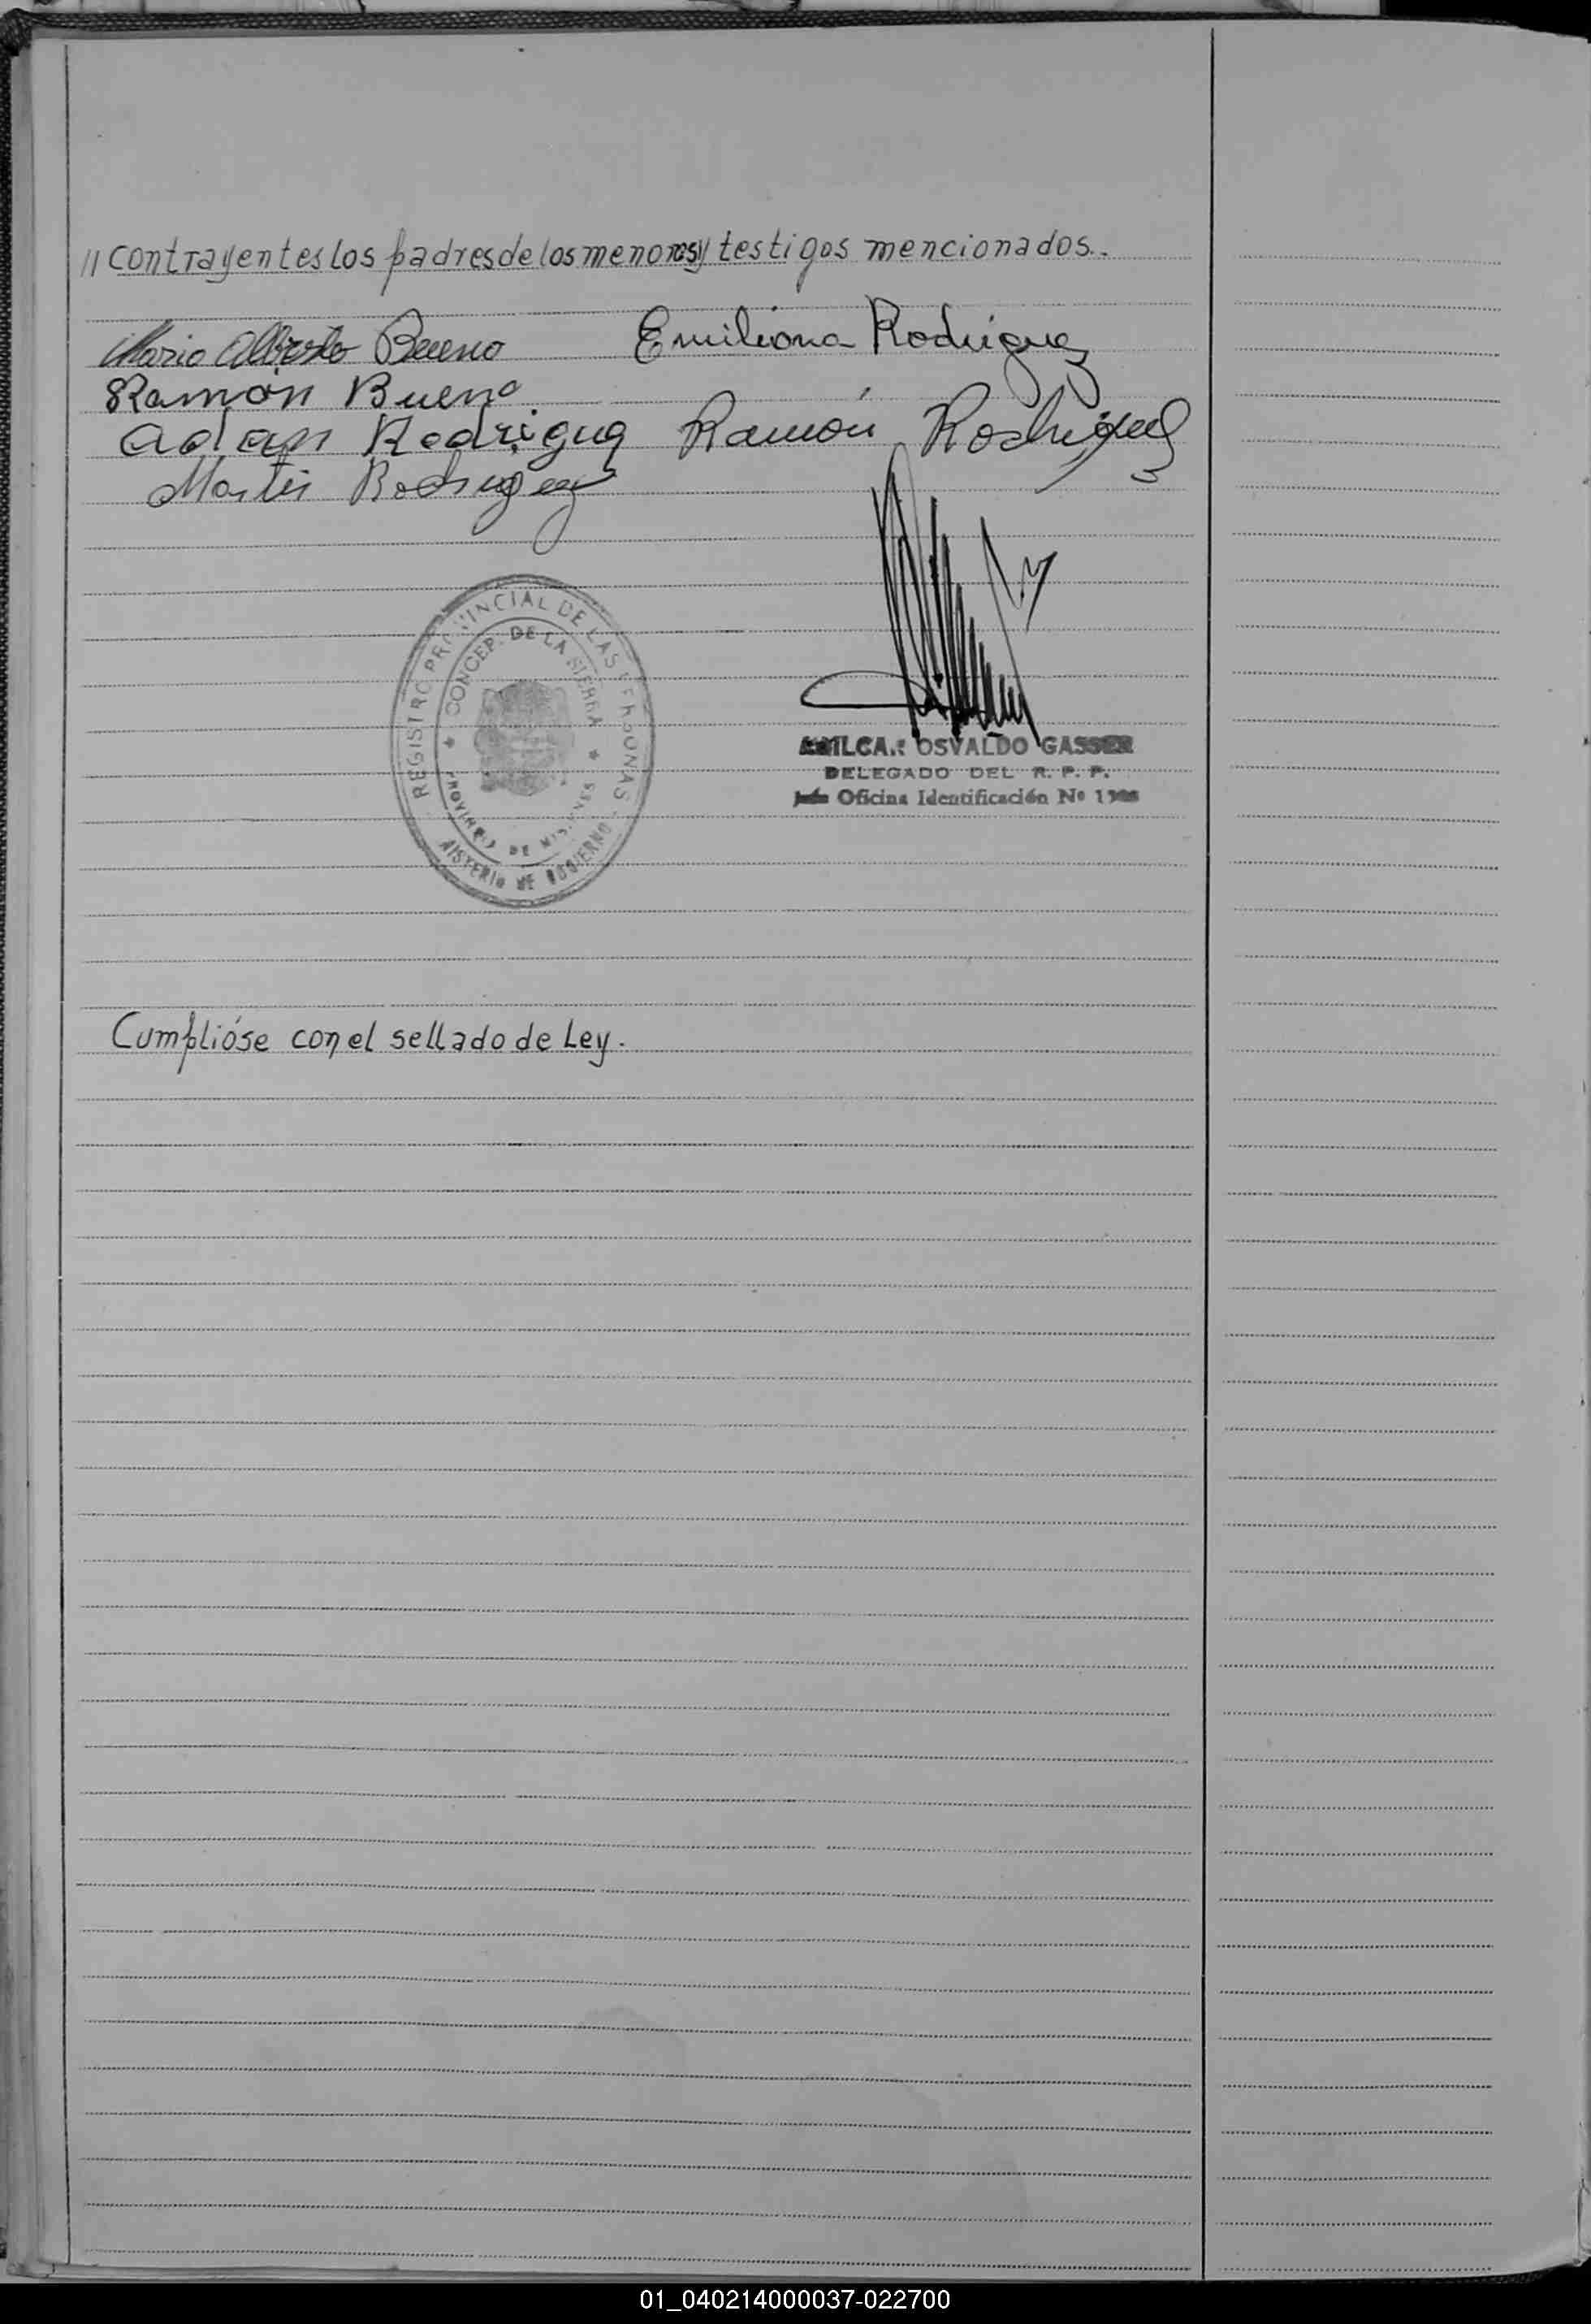 // contrayentes los padres de los menores y testigos mencionados..
Mario Alberto Bueno Emiliana Rodriguez
Ramón Bueno
Adan Rodriguez Ramón Rodriguez
Martin Rodriguez
REGISTRO PROVINCIAL DE LAS PERSONAS
CONCEP. DE LA SIERRA
PROVINCIA DE MISIONES
MINISTERIO DE GOBIERNO
AMILCAR OSVALDO GASSER
DELEGADO DEL R. P. P.
Jefe Oficina Identificación Nº
Cumplióse con el sellado de Ley.
01_040214000037-022700